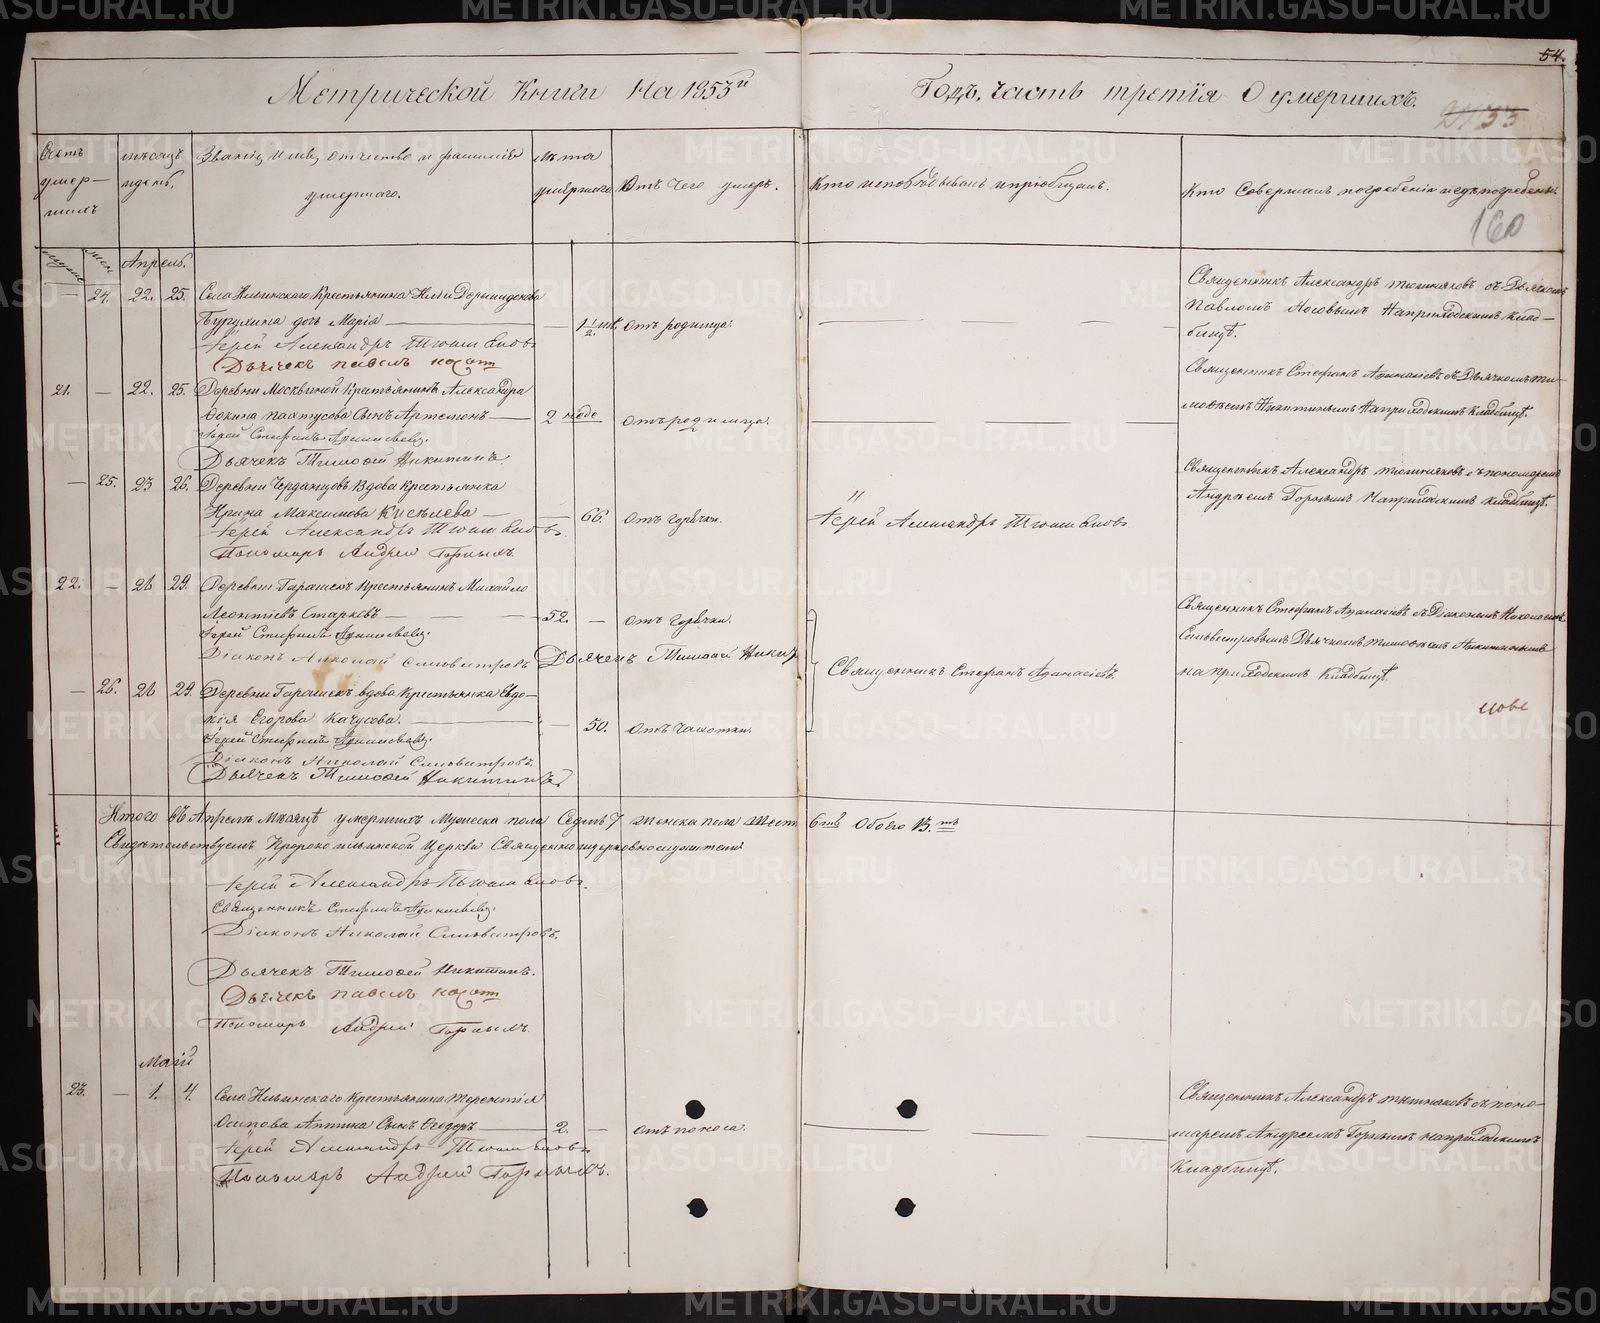 54.
Метрической Книги На 1853й Годъ, часть третія О умершихъ.
160
Счетъ умер-шихъ
мѣсяцъ и день.
Званіе, имя, отчество и фамилія умершаго.
Лѣта умершаго
Отъ чего умеръ.
Кто исповѣдывалъ и пріобщалъ.
Кто Совершалъ погребеніе и гдѣ погребены.
Апрель.
— 24. 22. 25. Села Ильинскаго Крестьянина Ильи
дочь Марія — 1 1/2 отъ родимца.
Священникъ Александръ съ Дьячкомъ
Павломъ Носовымъ На приходскомъ клад-
бищѣ.
Іерей Александръ
Дьячекъ павелъ носовъ
21. — 22. 25. Деревни Крестьянина Александра
Сынъ Артемонъ — 2 неде отъ родимца.
Священникъ Стефанъ Афанасіевъ съ Дьячкомъ Ти-
мофеемъ Никитинымъ На приходскомъ Кладбищѣ.
Іерей Стефанъ Афанасьевъ.
Дьячекъ Тимофей Никитинъ.
— 25. 23 26. Деревни Черданцовъ Вдова Крестьянка
Ирина Максимова Киселева — 66. отъ горячки.
Іерей Александръ
Священникъ Александръ съ пономаремъ
Андреемъ Горныхъ На приходскомъ кладбищѣ.
Іерей Александръ
Пономарь Андрей Горныхъ.
22. — 26 29. Деревни Гарашекъ Крестьянинъ Михайло
Леонтіевъ Старковъ — 52. — отъ Горячки.
Іерей Стефанъ Афанасьевъ.
Діаконъ Николай Сильвестровъ Дьячекъ Тимофей Никит
Священникъ Стефанъ Афанасіевъ.
Священникъ Стефанъ Афанасіевъ съ Діакономъ Николаемъ
Сильвестровымъ Дьячкомъ Тимофеемъ Никитинымъ
на приходскомъ Кладбищѣ.
— 26. 26 29. Деревни Гарашекъ вдова Крестьянка Евдо-
кія Егорова Качусова. — 50. отъ Чахотки.
Іерей Стефанъ Афанасьевъ.
Діаконъ Николай Сильвестровъ.
Дьячекъ Тимофей Никитинъ
Итого въ Апрелѣ Мѣсяцѣ умершихъ Мужеска пола Седмь 7 женска пола шесть 6ть Обоего 13.ть
Свидѣтельствуемъ Пророко ильинской Церкви Священноцерковнослужители
Іерей Александръ
Священникъ Стефанъ Афанасьевъ.
Діаконъ Николай Сильвестровъ.
Дьячекъ Тимофей Никитинъ.
Дьячекъ павелъ носовъ
Пономарь Андрей Горныхъ.
Маій
23. — 1. 4. Села Ильинскаго Крестьянина Терентія
Осипова Аптина Сынъ Феодоръ — 2. — отъ поноса.
Священникъ Александръ съ поно-
маремъ Андреемъ Горнымъ на приходскомъ
Кладбищѣ.
Іерей Александръ
Пономарь Андрей Горныхъ.
METRIKI.GASO-URAL.RU